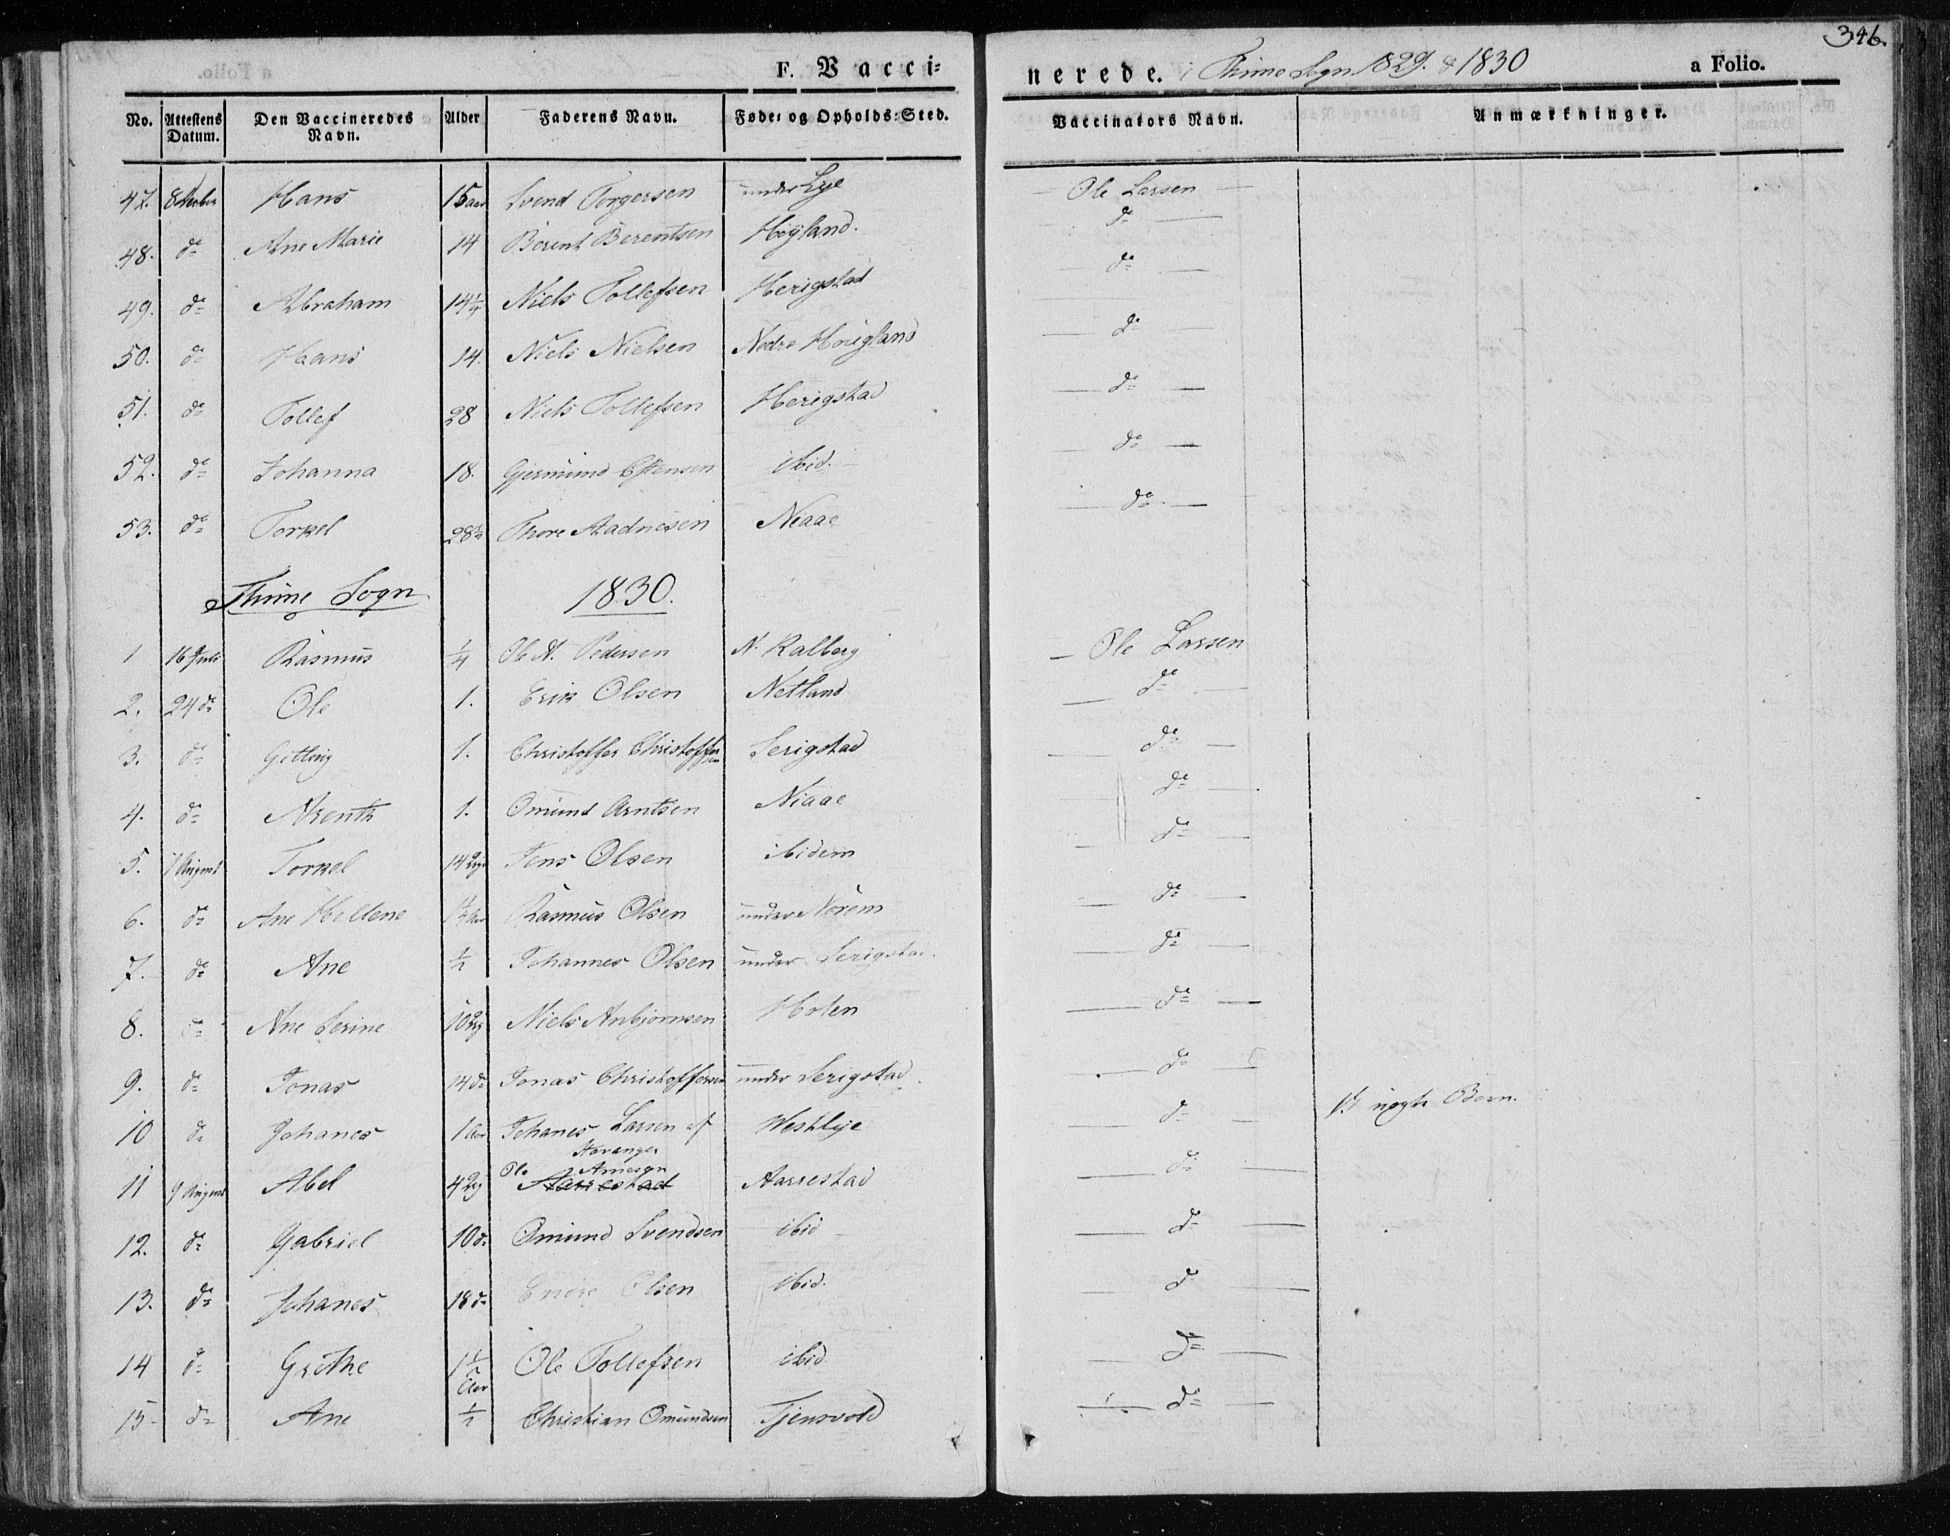 346.
F. Vacci=
nerede. i Thime Sogn 1829. & 1830 a Folio.
No. Attestens Datum. Den Vaccineredes Navn. Alder Faderens Navn. Føde- og Opholds-Sted. Vaccinators Navn. Anmærkninger.
47. Hans 15 aar Svend Torgersen under Lye Ole Larsen
48. do Ane Marie 14 Berent Berentsen Høyland. do
49. do Abraham Niels Tollefsen Herigstad do
50. do Hans 14. Niels Nielsen Nedre Hougland do
51. do Tollef 28 Niels Tollefsen Herigstad do
52. do Johanna 18. Gjermund Estensen ibid. do
53. do Torkel Thore Aadnesen Niaae do
Thime Sogn 1830.
1 16 Juli Rasmus 1/4 Ole A. Pedersen N. Kalberg Ole Larsen
2. 24 do Ole 1. Erik Olsen Netland do
3. do 1. Christoffer Christoffersen Serigstad do
4. do Arenth 1. Omund Arntsen Niaae do
5. 1 August Torkel Jens Olsen ibidem do
6. do Ane Hellene Rasmus Olsen under Norem do
7. do Ane 1/2 Johannes Olsen under Serigstad. do
8. do Ane Serine Niels Anbjornsen Hoten do
9. do Jonas 14 do Jonas Christoffersen under Serigstad. do
10 do Johanes 1 Aar Johanes Larsen af Stavanger Westlye do Børn.
11 9 August Abel Ole Arnesen Aarrestad Aarrestad do
12. do Gabriel 10 do Omund Svendsen ibid do
13. do Johanes 18 do Endre Olsen ibid. do
14 do Grethe 1 1/2 Aar Ole Tollefsen ibid. do
15 do Ane 1/2 Christian Omundsen Tjensvold do